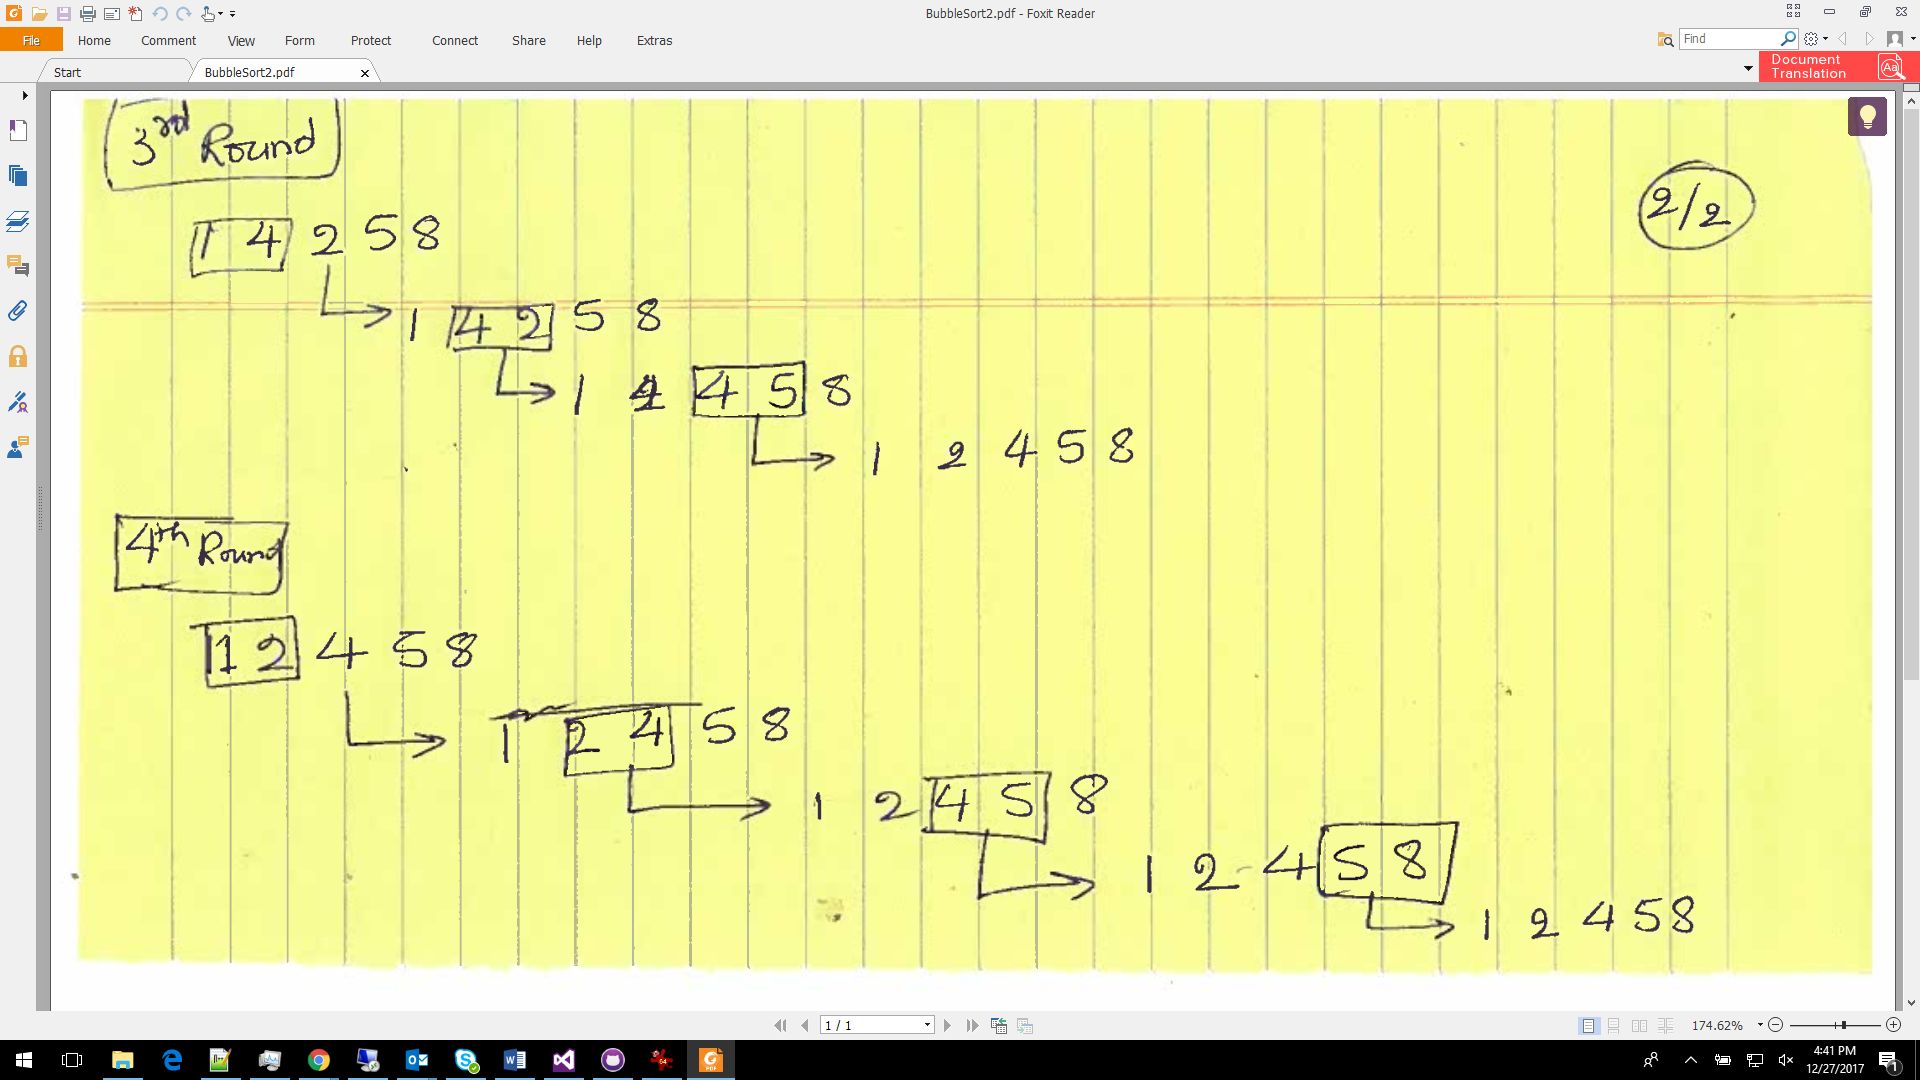 BubbleSort2.pdf - Foxit Reader
File Home Comment View Form Protect Connect Share Help Extras
Find
Start BubbleSort2.pdf
Document
Translation
3rd Round
2/2
1 4 2 5 8
1 4 2 5 8
1 2 4 5 8
1 2 4 5 8
4th Round
1 2 4 5 8
1 2 4 5 8
1 2 4 5 8
1 2 4 5 8
1 2 4 5 8
1 / 1
174.62%
4:41 PM
12/27/2017
1